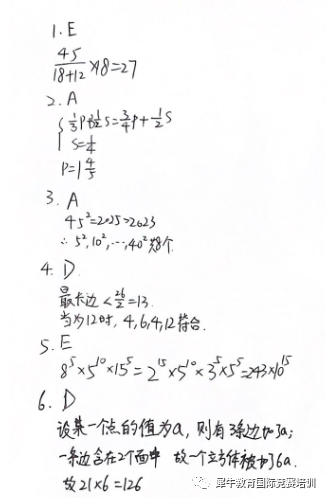 1. E
45/(18+12) ×18=27
2. A
{ 1/3 P + 1/2 S = 3/4 P + 1/2 S
S=1/4
P=1 4/5
3. A
45²=2025>2023
∴ 5², 10², ⋯, 40² 共8个.
4. D.
最长边 < 26/2 =13.
当为12时, 4,6,4,12符合.
5. E
8⁵×5¹⁰×15⁵=2¹⁵×5¹⁰×3⁵×5⁵=243×10¹⁵
6. D
设某一个点的值为a, 则有3条边加了3a;
一条边含在2个面中 故一个立方体被加了6a.
故21×6=126
犀牛教育国际竞赛培训